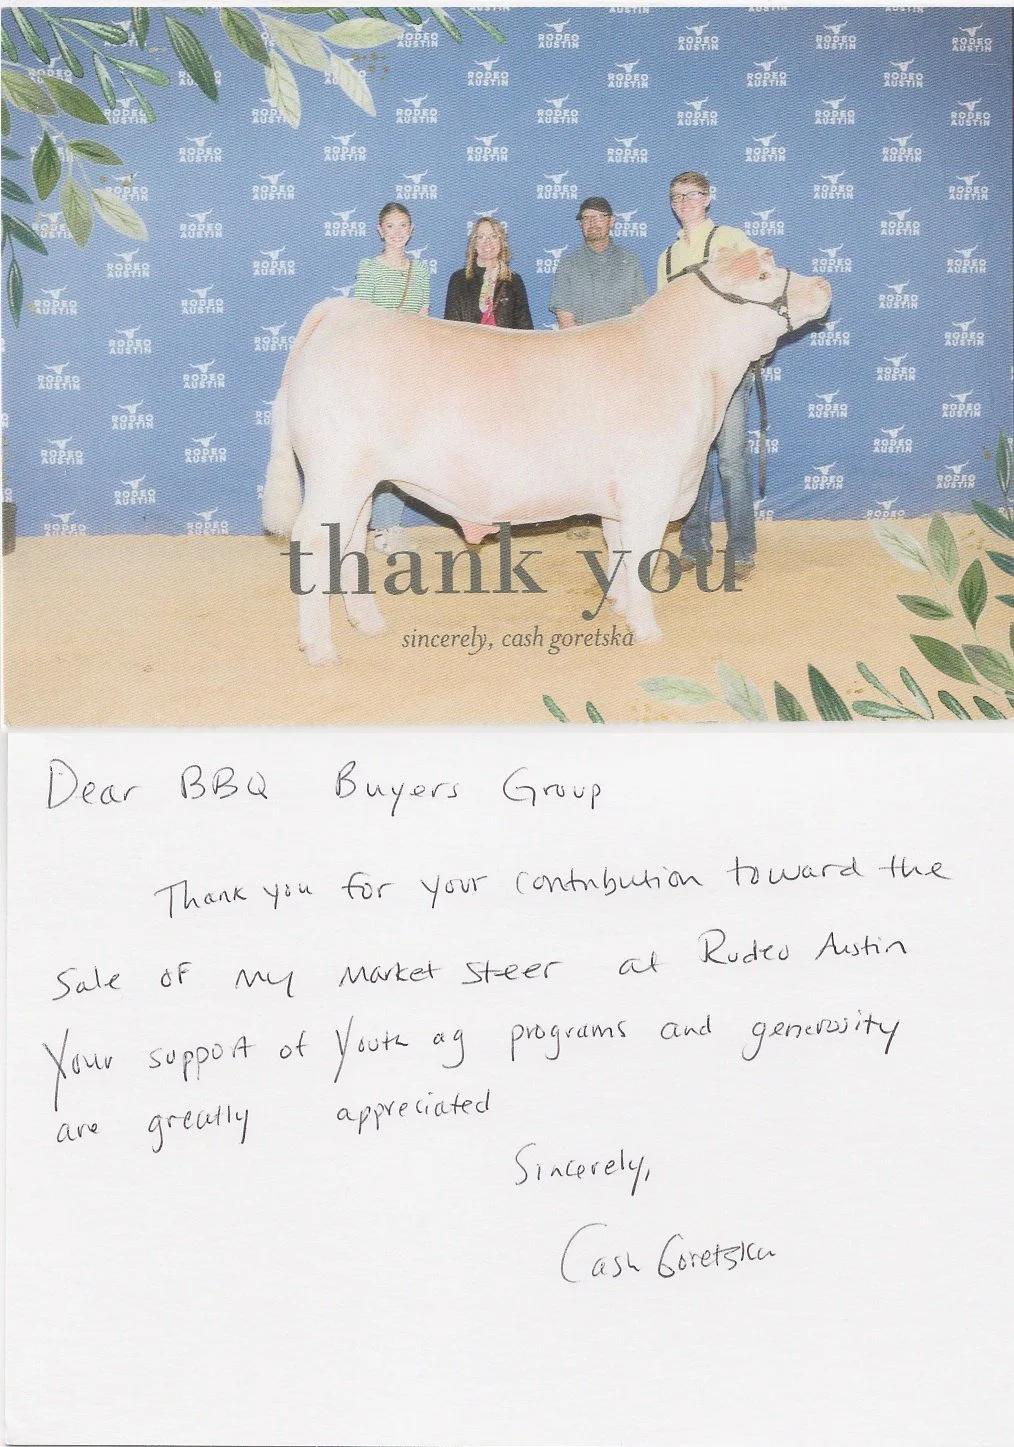 RODEO AUSTIN
thank you
sincerely, cash goretska
Dear BBQ Buyers Group
Thank you for your contribution toward the
sale of my market steer at Rodeo Austin
Your support of Youth ag programs and generosity
are greatly appreciated
Sincerely,
Cash Goretska